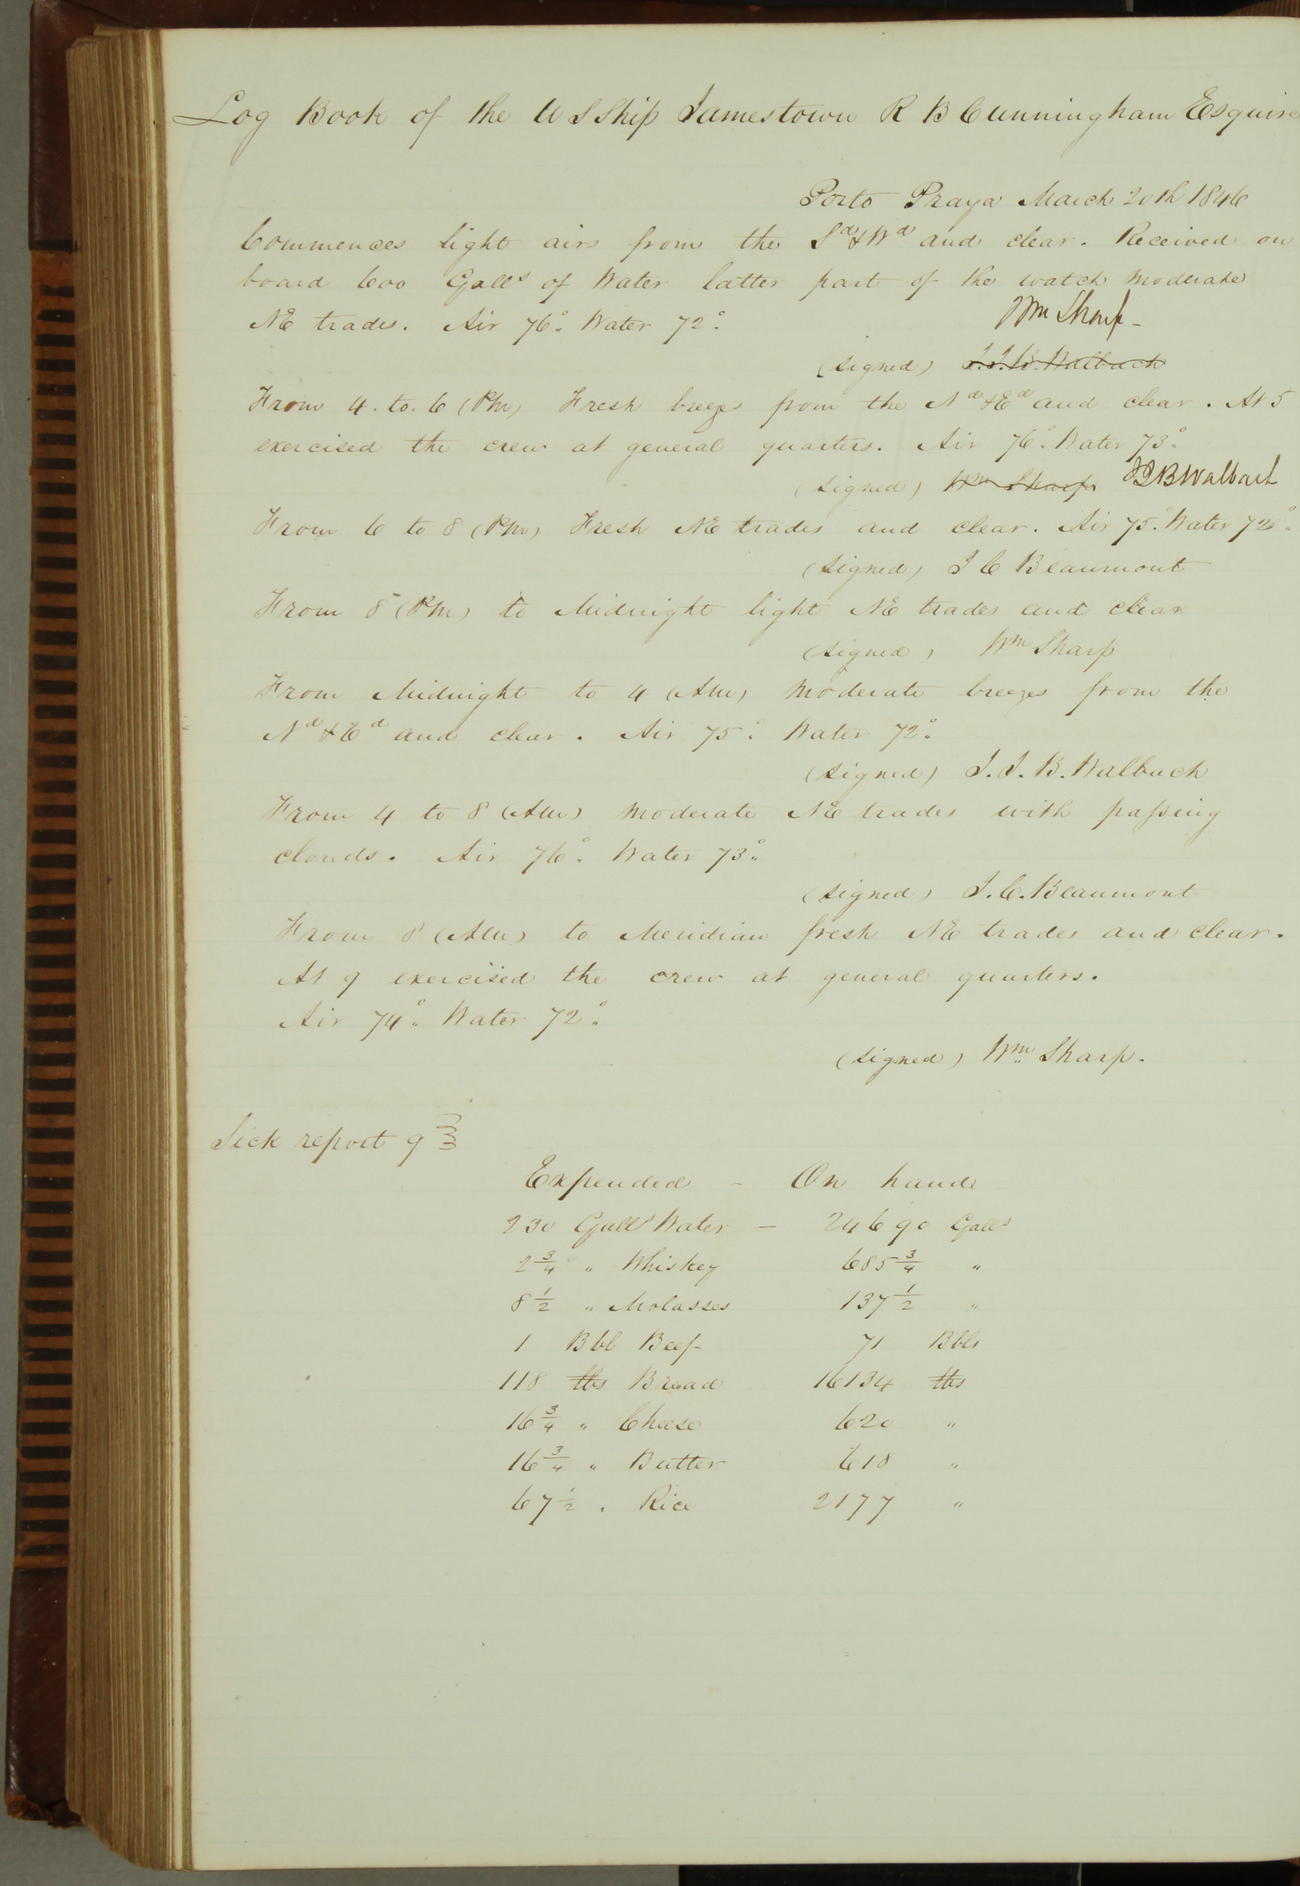 Log Book of the U S Ship Jamestown R B Cunningham Esquire
Porto Praya March 20th 1846
Commences light airs from the Sd & Wd and clear. Received on
board 600 Galls of Water latter part of the watch moderate
NE trades. Air 76°. Water 72°.
Wm Sharp-
(signed) J. J. B. Walbach
From 4. to. 6 (PM) Fresh breezes from the Nd & Ed and clear. At 5
exercised the crew at general quarters. Air 76°. Water 73°.
(signed) Wm Sharp JJBWalbach
From 6 to 8 (PM) Fresh NE trades and clear. Air 75°. Water 72°.
(signed) J C Beaumont
From 8 (PM) to Midnight light NE trades and clear
(signed) Wm Sharp
From Midnight to 4 (AM) moderate breezes from the
Nd & Ed and clear. Air 75°. Water 72°.
(signed) J. J. B. Walbach
From 4 to 8 (AM) moderate NE trades with passing
clouds. Air 76°. Water 73°.
(signed) J. C. Beaumont
From 8 (AM) to Meridian fresh NE trades and clear.
At 9 exercised the crew at general quarters.
Air 74°. Water 72°.
(signed) Wm Sharp.
Sick report 9
Expended - On hand
230 Galls Water - 24690 Galls
2 3/4 " Whiskey 685 3/4 "
8 1/2 " Molasses 137 1/2 "
1 Bbl Beef 71 Bbls
118 lbs Bread 16134 lbs
16 3/4 " Cheese 620 "
16 3/4 " Butter 618 "
67 1/2 . Rice 2177 "